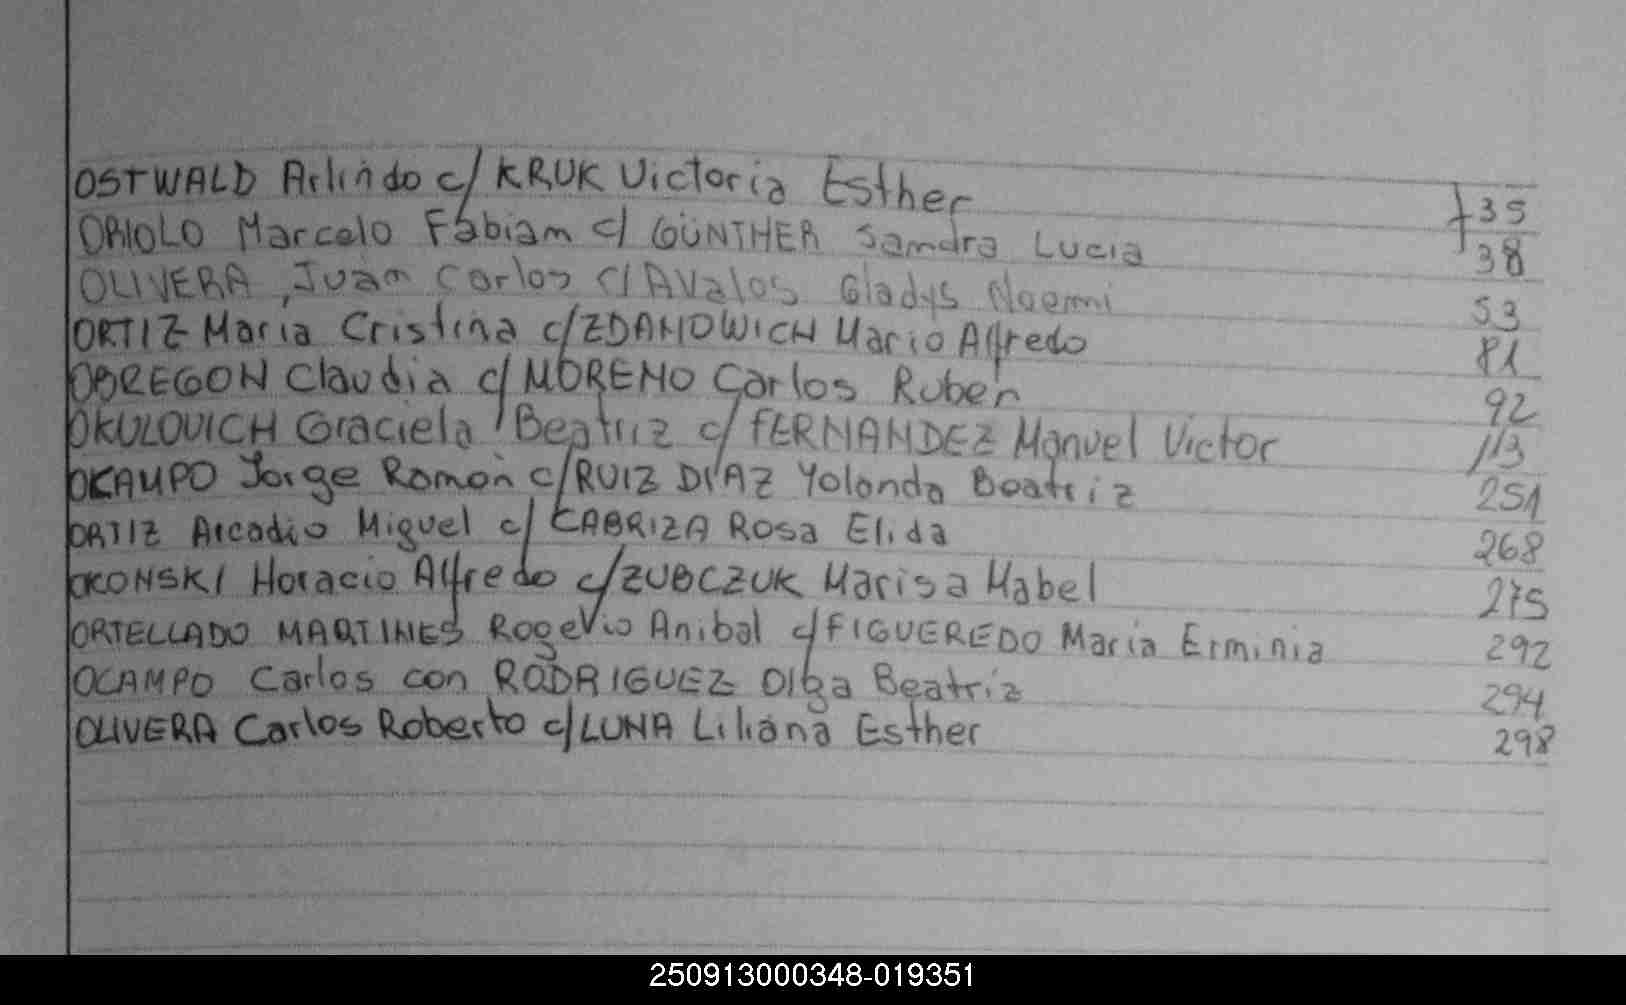 OSTWALD Arlindo c/ KRUK Victoria Esther 35
ORIOLO Marcelo Fabian c/ GÜNTHER Sandra Lucia 38
OLIVERA, Juan Carlos c/ AValos Gladys Noemi 53
ORTIZ Maria Cristina c/ ZDANOWICH Mario Alfredo 81
OBREGON Claudia c/ MORENO Carlos Ruben 92
OKULOVICH Graciela Beatriz c/ FERNANDEZ Manuel Victor 113
OKAMPO Jorge Ramón c/ RUIZ DIAZ Yolanda Beatriz 251
ORTIZ Arcadio Miguel c/ CABRIZA Rosa Elida 268
OKONSKI Horacio Alfredo c/ ZUBCZUK Marisa Mabel 275
ORTELLADO MARTINES Rogelio Anibal c/ FIGUEREDO Maria Erminia 292
OCAMPO Carlos con RODRIGUEZ Olga Beatriz 294
OLIVERA Carlos Roberto c/ LUNA Liliana Esther 298
250913000348-019351